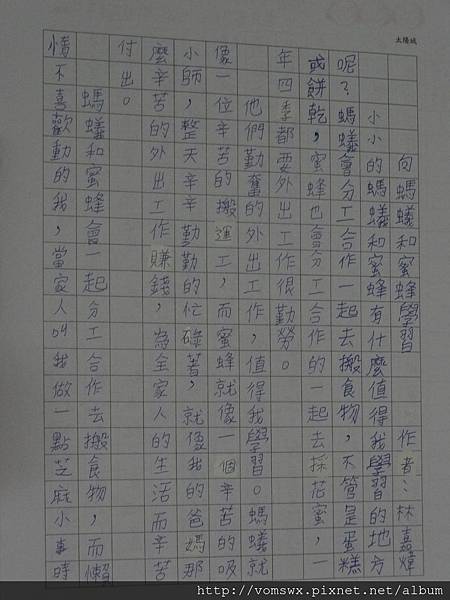 太陽城
向螞蟻和蜜蜂學習 作者:林嘉煒
小小的螞蟻和蜜蜂有什麼值得我學習的地方
呢?螞蟻會分工合作一起去搬食物,不管是蛋糕
或餅乾,蜜蜂也會分工合作的一起去採花蜜,一
年四季都要外出工作很勤勞。
他們勤奮的外出工作,值得我學習。螞蟻就
像一位辛苦的搬運工,而蜜蜂就像一個辛苦的吸
小師,整天辛辛勤勤的忙碌著,就像我的爸媽那
麼辛苦的外出工作賺錢,為全家人的生活而辛苦
付出。
螞蟻和蜜蜂會一起分工合作去搬食物,而懶
惰不喜歡動的我,當家人叫我做一點芝麻小事時
http://vomswx.pixnet.net/album